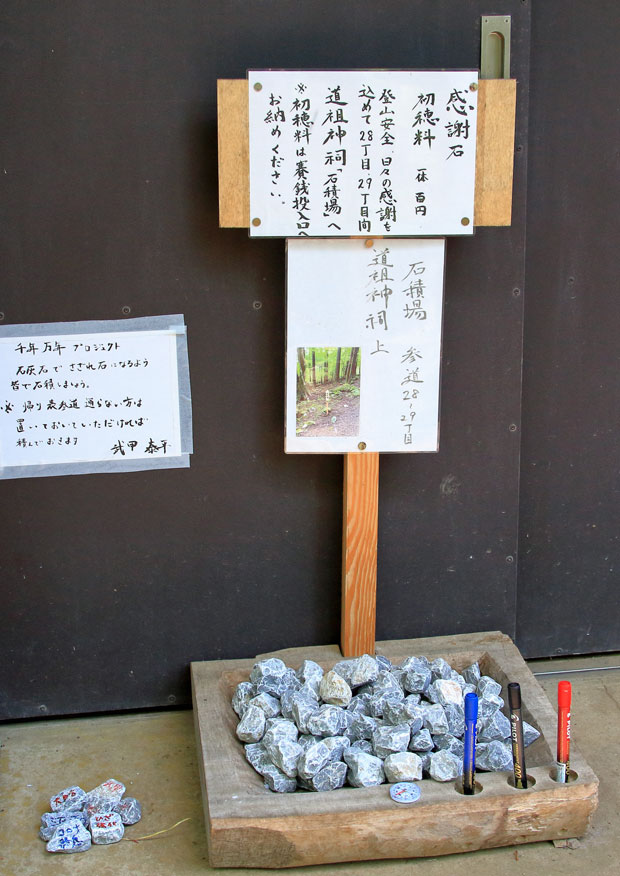 感謝石
初穂料 一体 百円
登山安全、日々の感謝を
込めて28丁目、29丁目間
道祖神祠「石積場」へ
※初穂料は賽銭投入口へ
お納めください。
石積場 参道28~29丁目
道祖神祠上
千年万年プロジェクト
石灰石でさざれ石になるよう
皆で石積しましょう。
※帰り表参道通らない方は
置いておいていただければ
積んでおきます
武甲 泰平
PILOT
PILOT 100